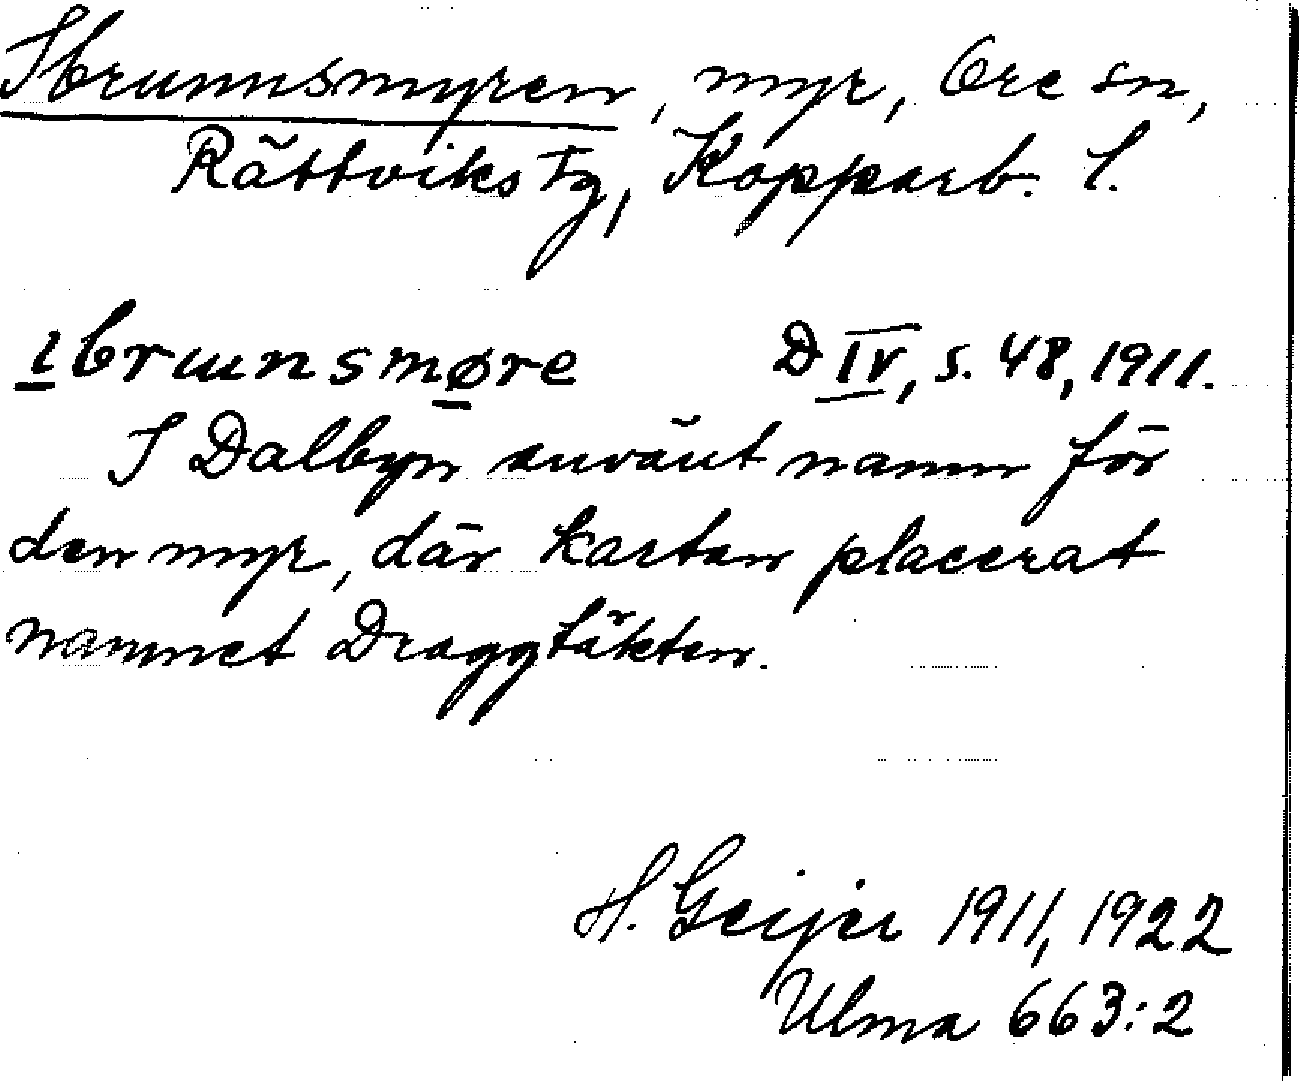 Ibrunnsmyren, myr, Ore sn,
Rättviks tg, Kopparb. l.
ıbrɯnsmøre D IV, s. 48, 1911.
I Dalbyn använt namn för
den myr, där kartan placerat
namnet Draggtäkten.
H. Geijer 1911, 1922
Ulma 663:2